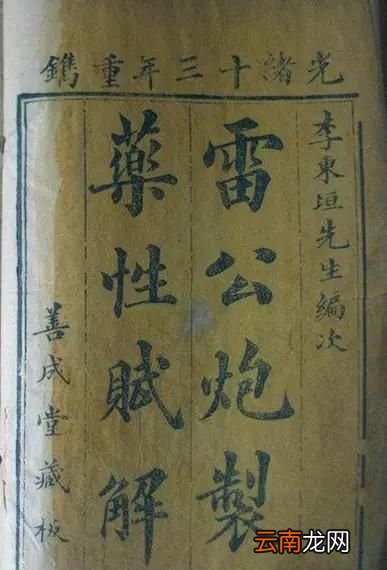 光緒十三年重鐫
李東垣先生編次
雷公炮製
藥性賦解
善成堂藏板
云南龙网